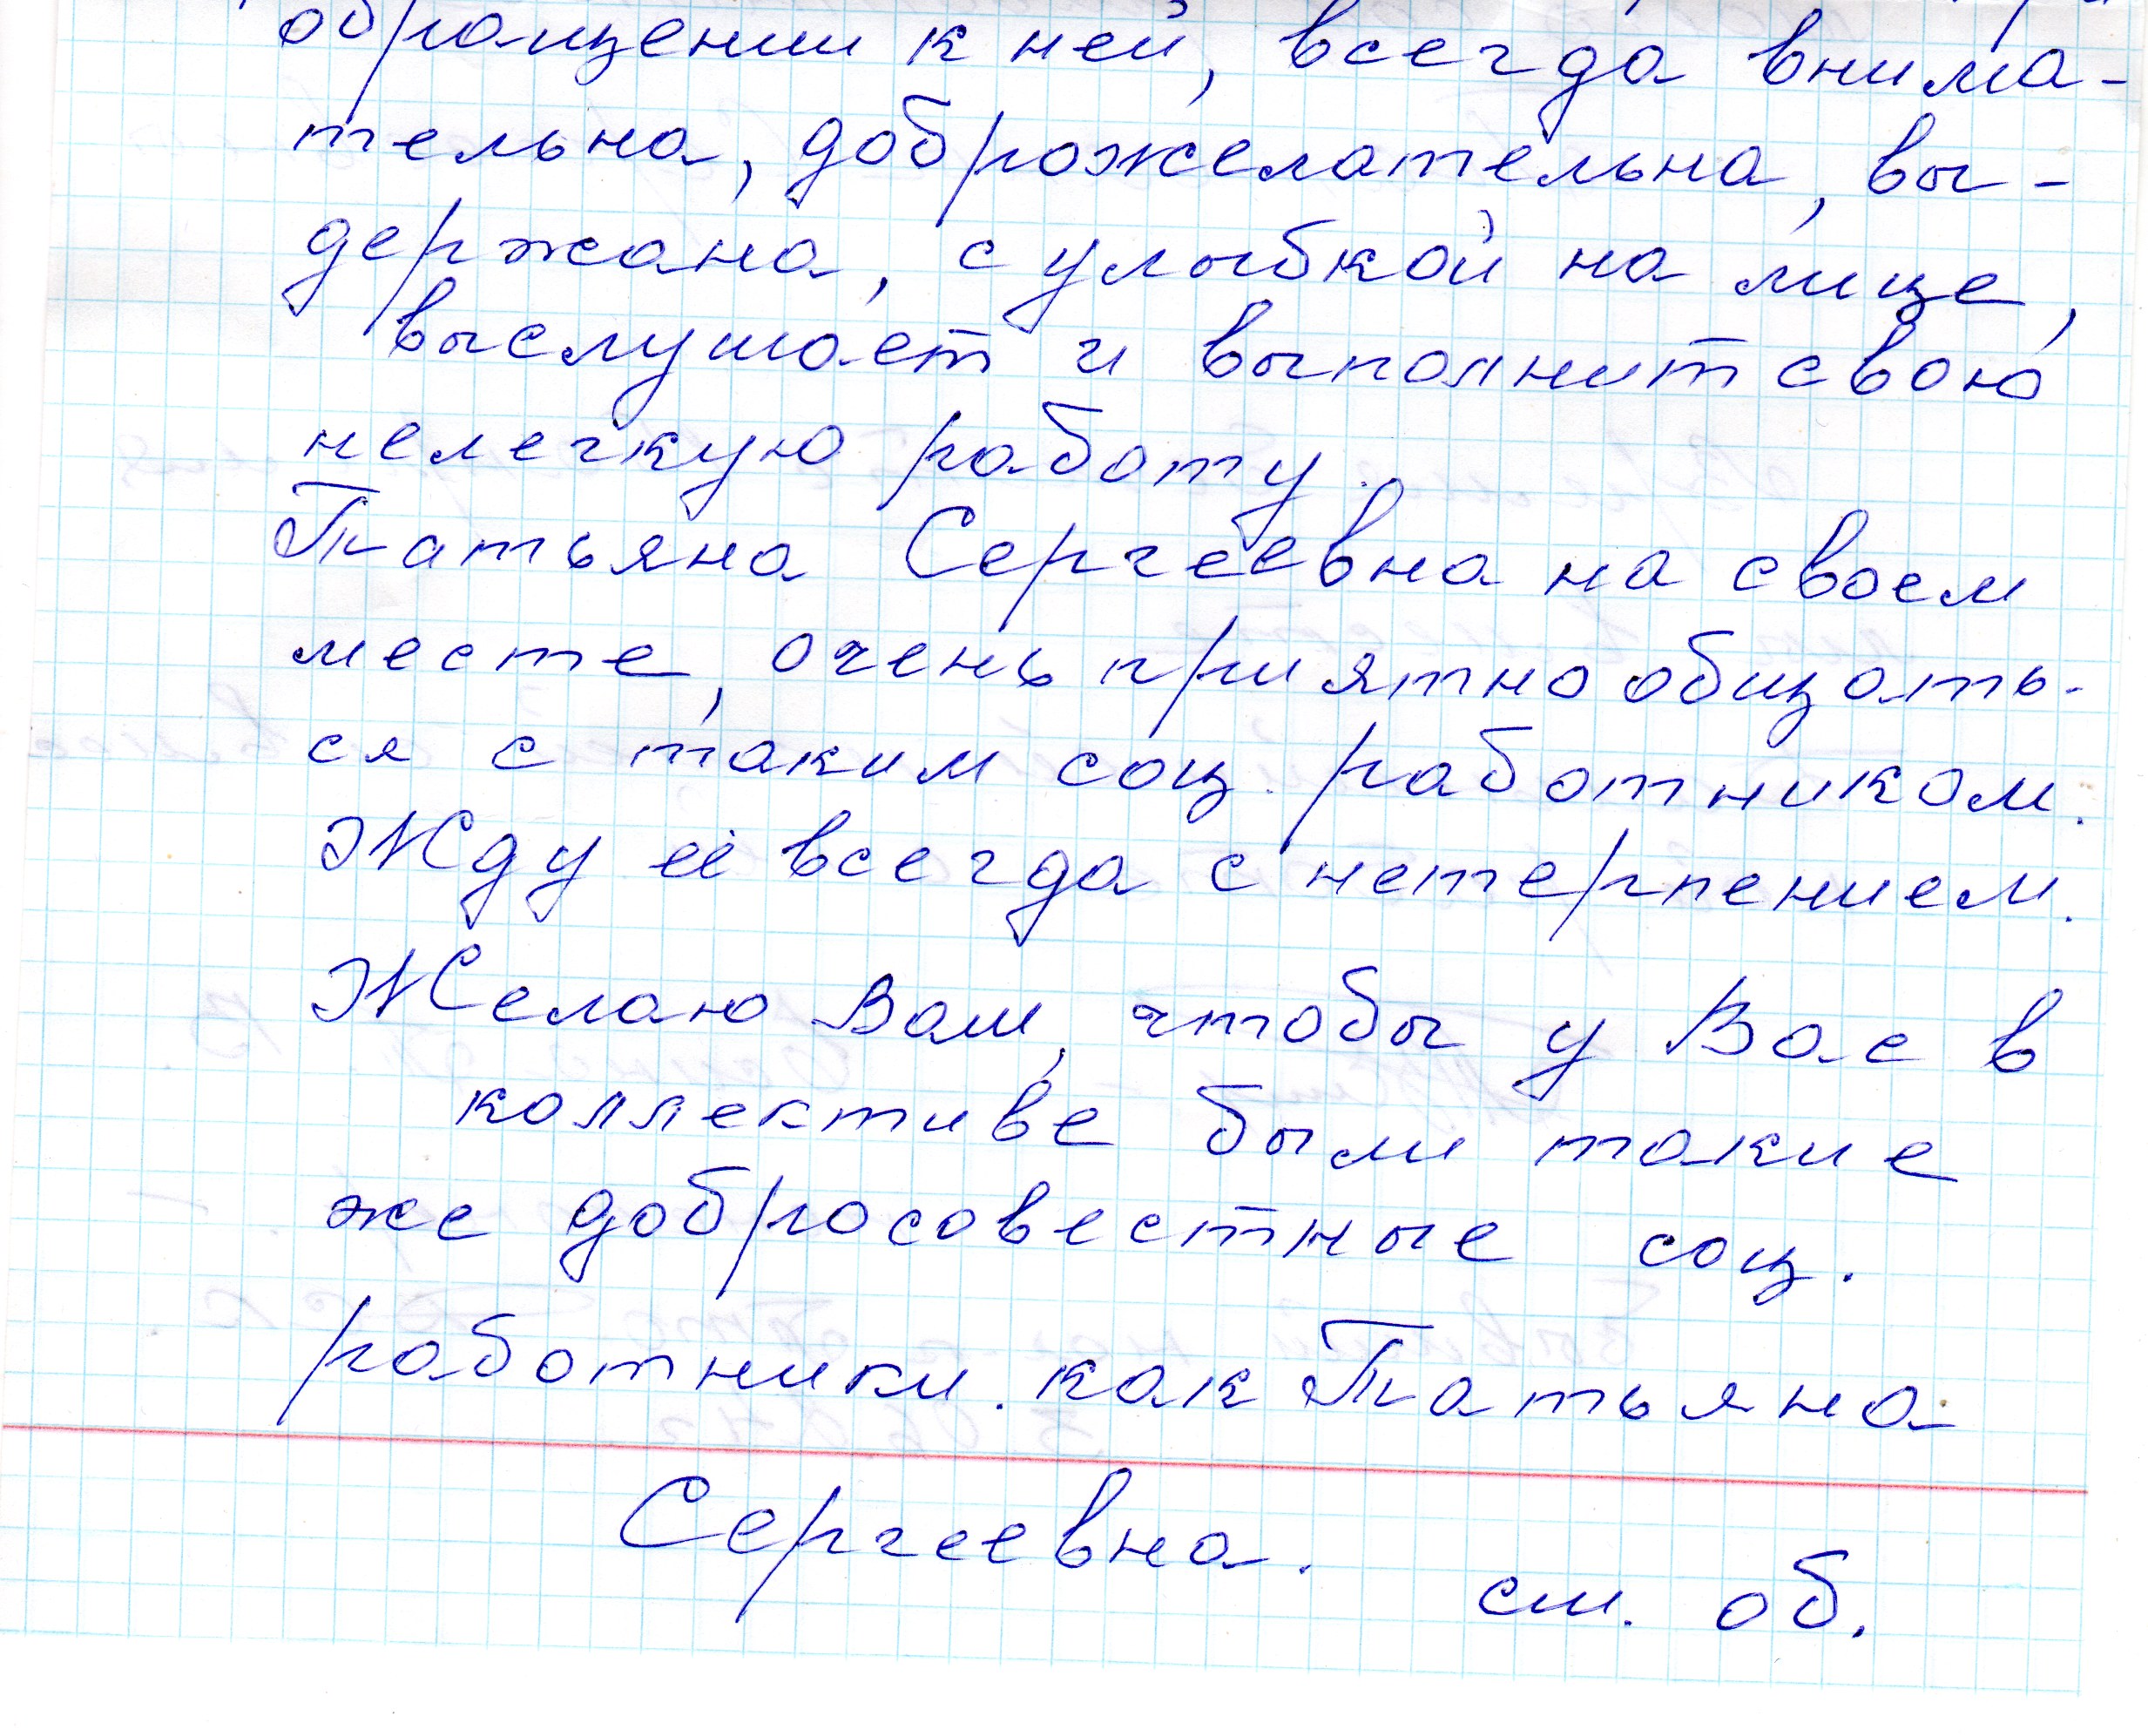 обращении к ней, всегда внима-
тельна, доброжелательна, вы-
держана, с улыбкой на лице,
выслушает и выполнит свою
нелегкую работу.
Татьяна Сергеевна на своем
месте, очень приятно общать-
ся с таким соц. работником.
Жду её всегда с нетерпением.
Желаю Вам, чтобы у Вас в
коллективе были такие
же добросовестные соц.
работники. как Татьяна
Сергеевна.
см. об.